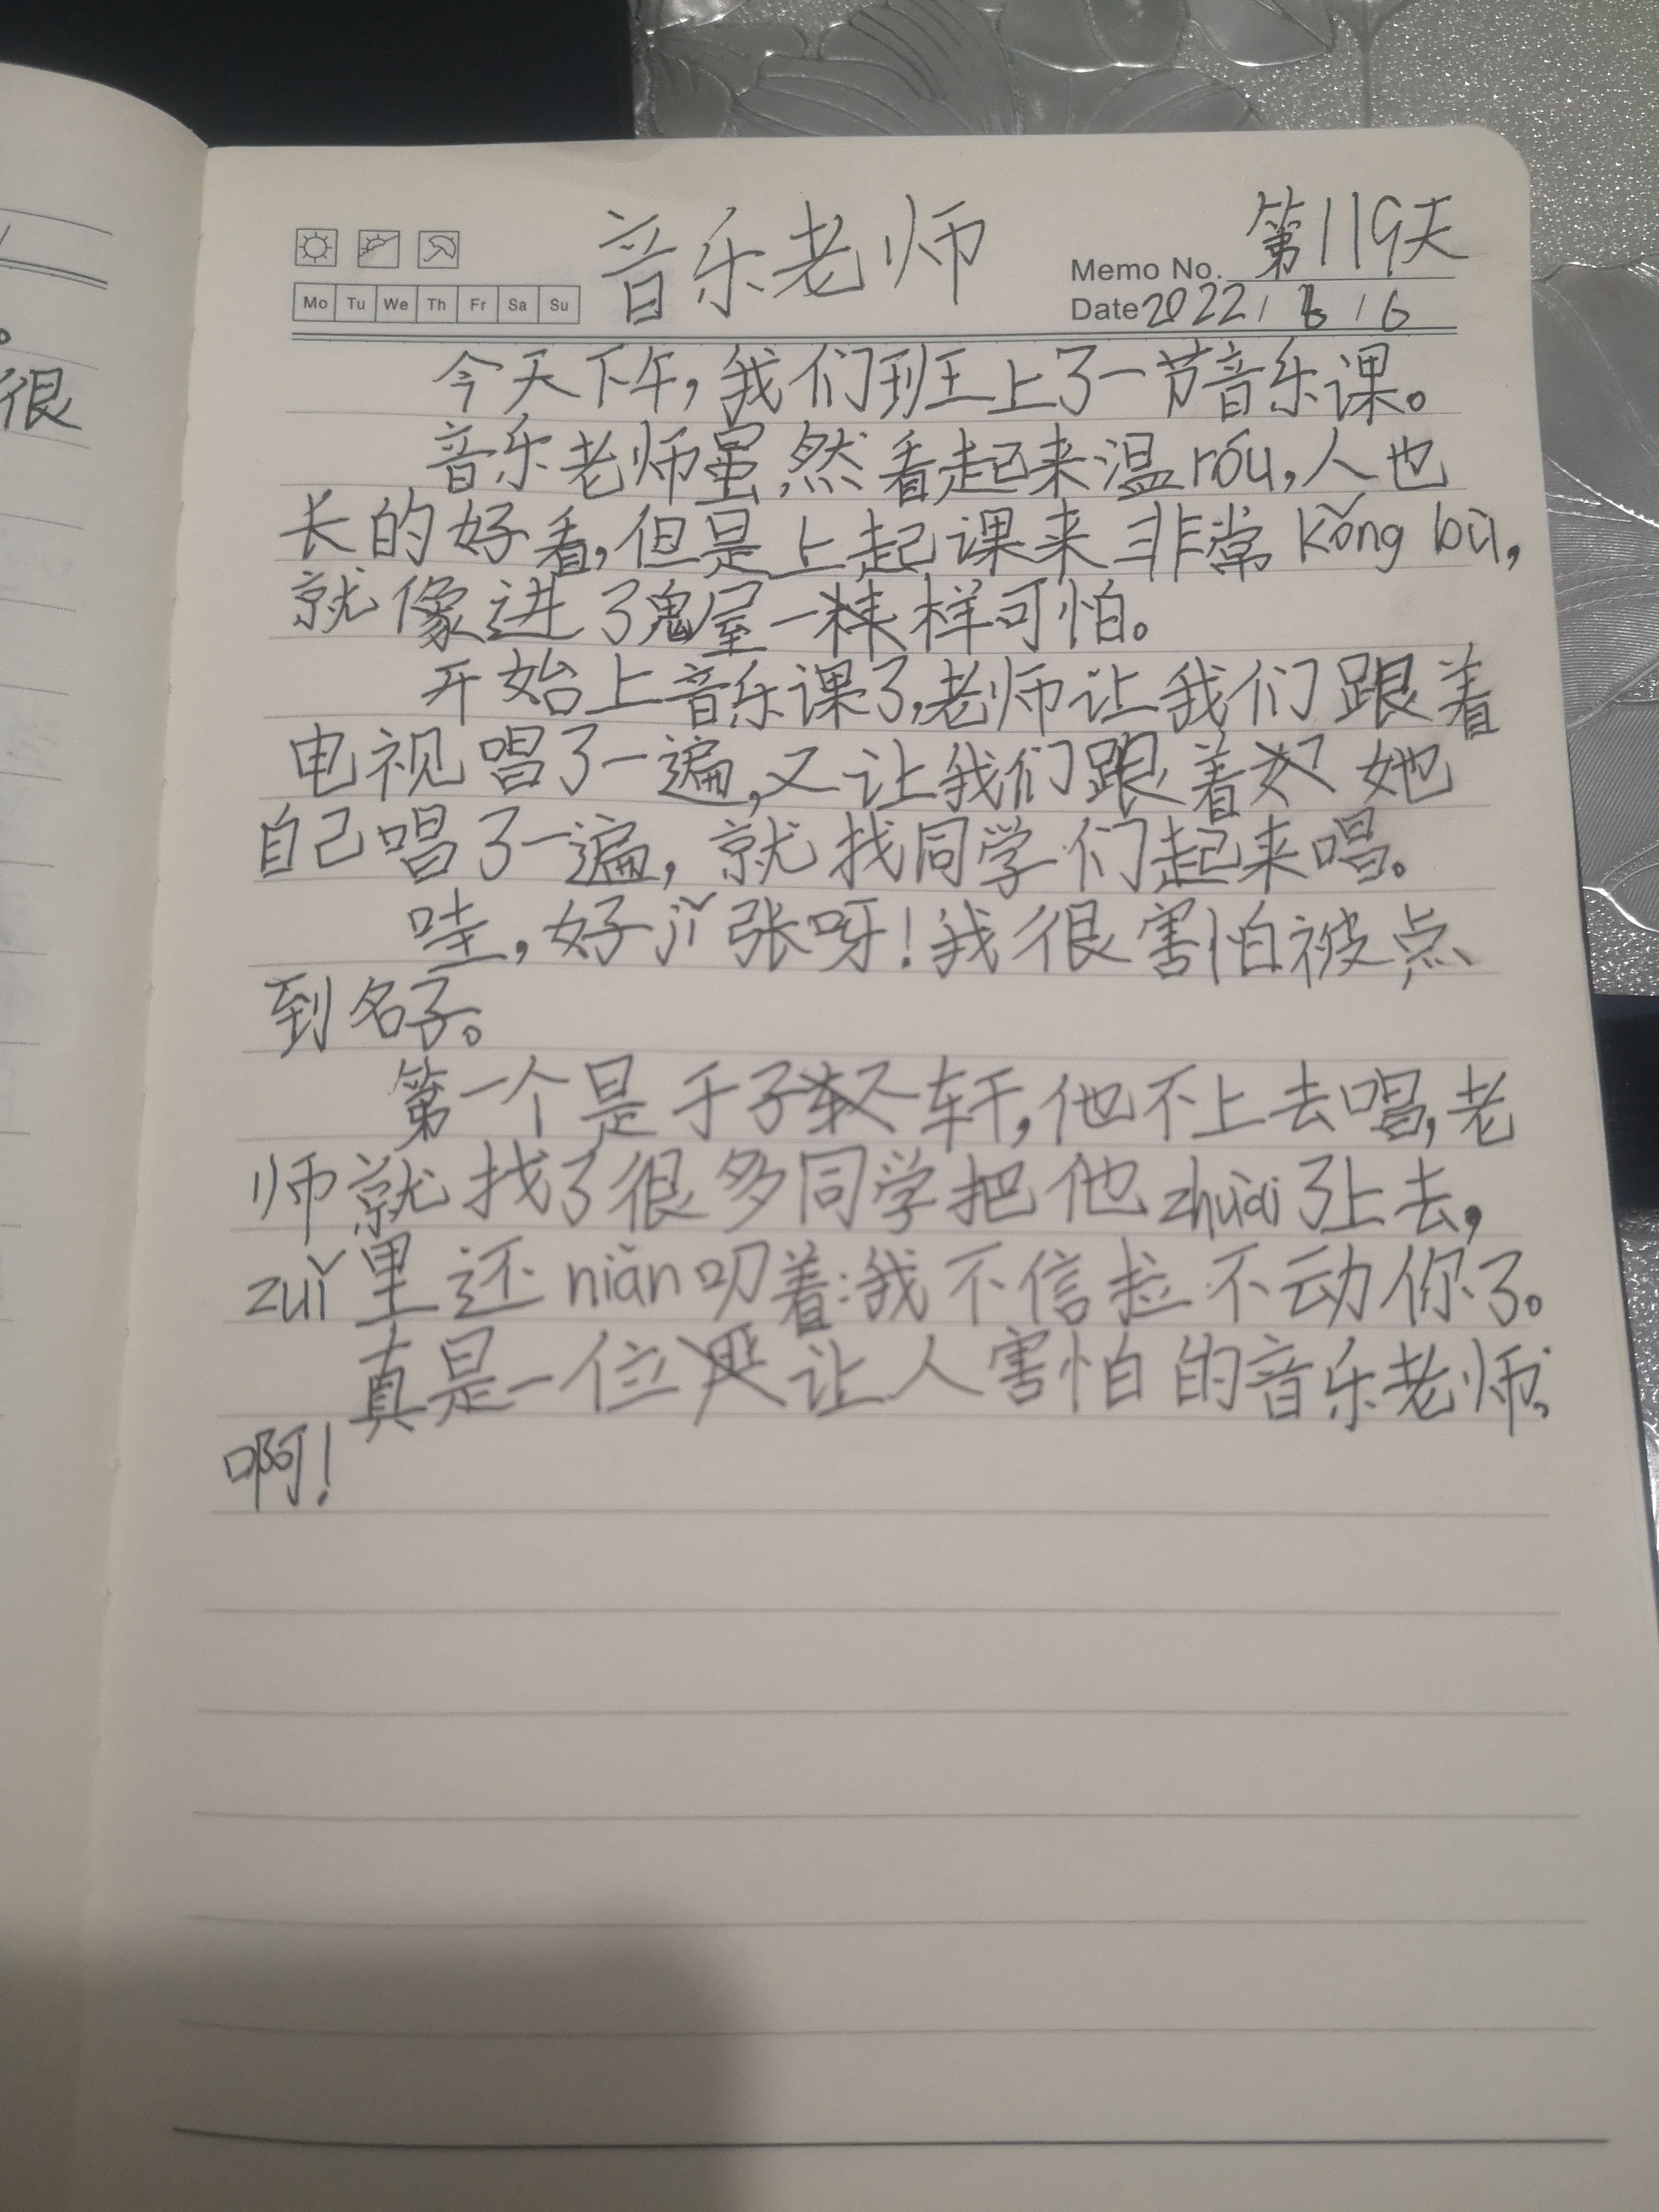 音乐老师
第119天
Memo No.
Mo Tu We Th Fr Sa Su
Date 2022/6/6
今天下午,我们班上了一节音乐课。
音乐老师虽然看起来温róu,人也
长的好看,但是上起课来非常kǒng bù,
就像进了鬼屋一样可怕。
开始上音乐课了,老师让我们跟着
电视唱了一遍,又让我们跟着她
自己唱了一遍,就找同学们起来唱。
哇,好jǐ张呀!我很害怕被点
到名子。
第一个是于子轩,他不上去唱,老
师就找了很多同学把他zhuài了上去,
zuǐ里还niàn叨着:我不信拉不动你了。
真是一位让人害怕的音乐老师
啊!
很
。